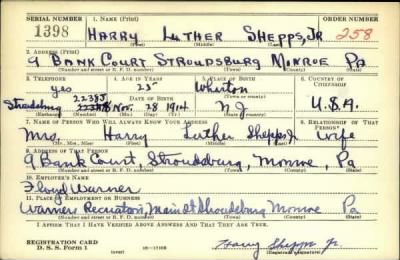 SERIAL NUMBER 1. NAME (Print) ORDER NUMBER
1398 HARRY LUTHER SHEPPS, JR 258
(First) (Middle) (Last)
2. ADDRESS (Print)
9 BANK COURT STROUDSBURG MONROE PA
(Number and street or R. F. D. number) (Town) (County) (State)
3. TELEPHONE 4. AGE IN YEARS 5. PLACE OF BIRTH 6. COUNTRY OF CITIZENSHIP
yes 25 Wharton
2238J DATE OF BIRTH
Stroudsburg Nov. 28 1914 N J U.S.A.
(Exchange) (Number) (Mo.) (Day) (Yr.) (State or country)
7. NAME OF PERSON WHO WILL ALWAYS KNOW YOUR ADDRESS 8. RELATIONSHIP OF THAT PERSON
Mrs. Harry Luther Shepps Jr Wife
(Mr., Mrs., Miss) (First) (Middle) (Last)
9. ADDRESS OF THAT PERSON
9 Bank Court, Stroudsburg, Monroe, Pa
(Number and street or R. F. D. number) (Town) (County) (State)
10. EMPLOYER'S NAME
Floyd Warner
11. PLACE OF EMPLOYMENT OR BUSINESS
Warners Recreation, Main St Stroudsburg Monroe Pa
(Number and street or R. F. D. number) (Town) (County) (State)
I AFFIRM THAT I HAVE VERIFIED ABOVE ANSWERS AND THAT THEY ARE TRUE.
REGISTRATION CARD
D. S. S. Form 1 (over) Harry Shepps Jr.
(Registrant's signature)